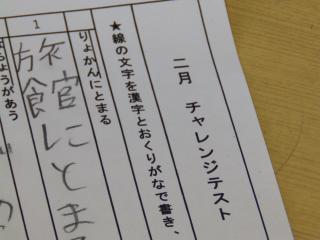 二月 チャレンジテスト
★線の文字を漢字とおくりがなで書き、
1
りょかんにとまる
旅館にとまる
ょうがあう